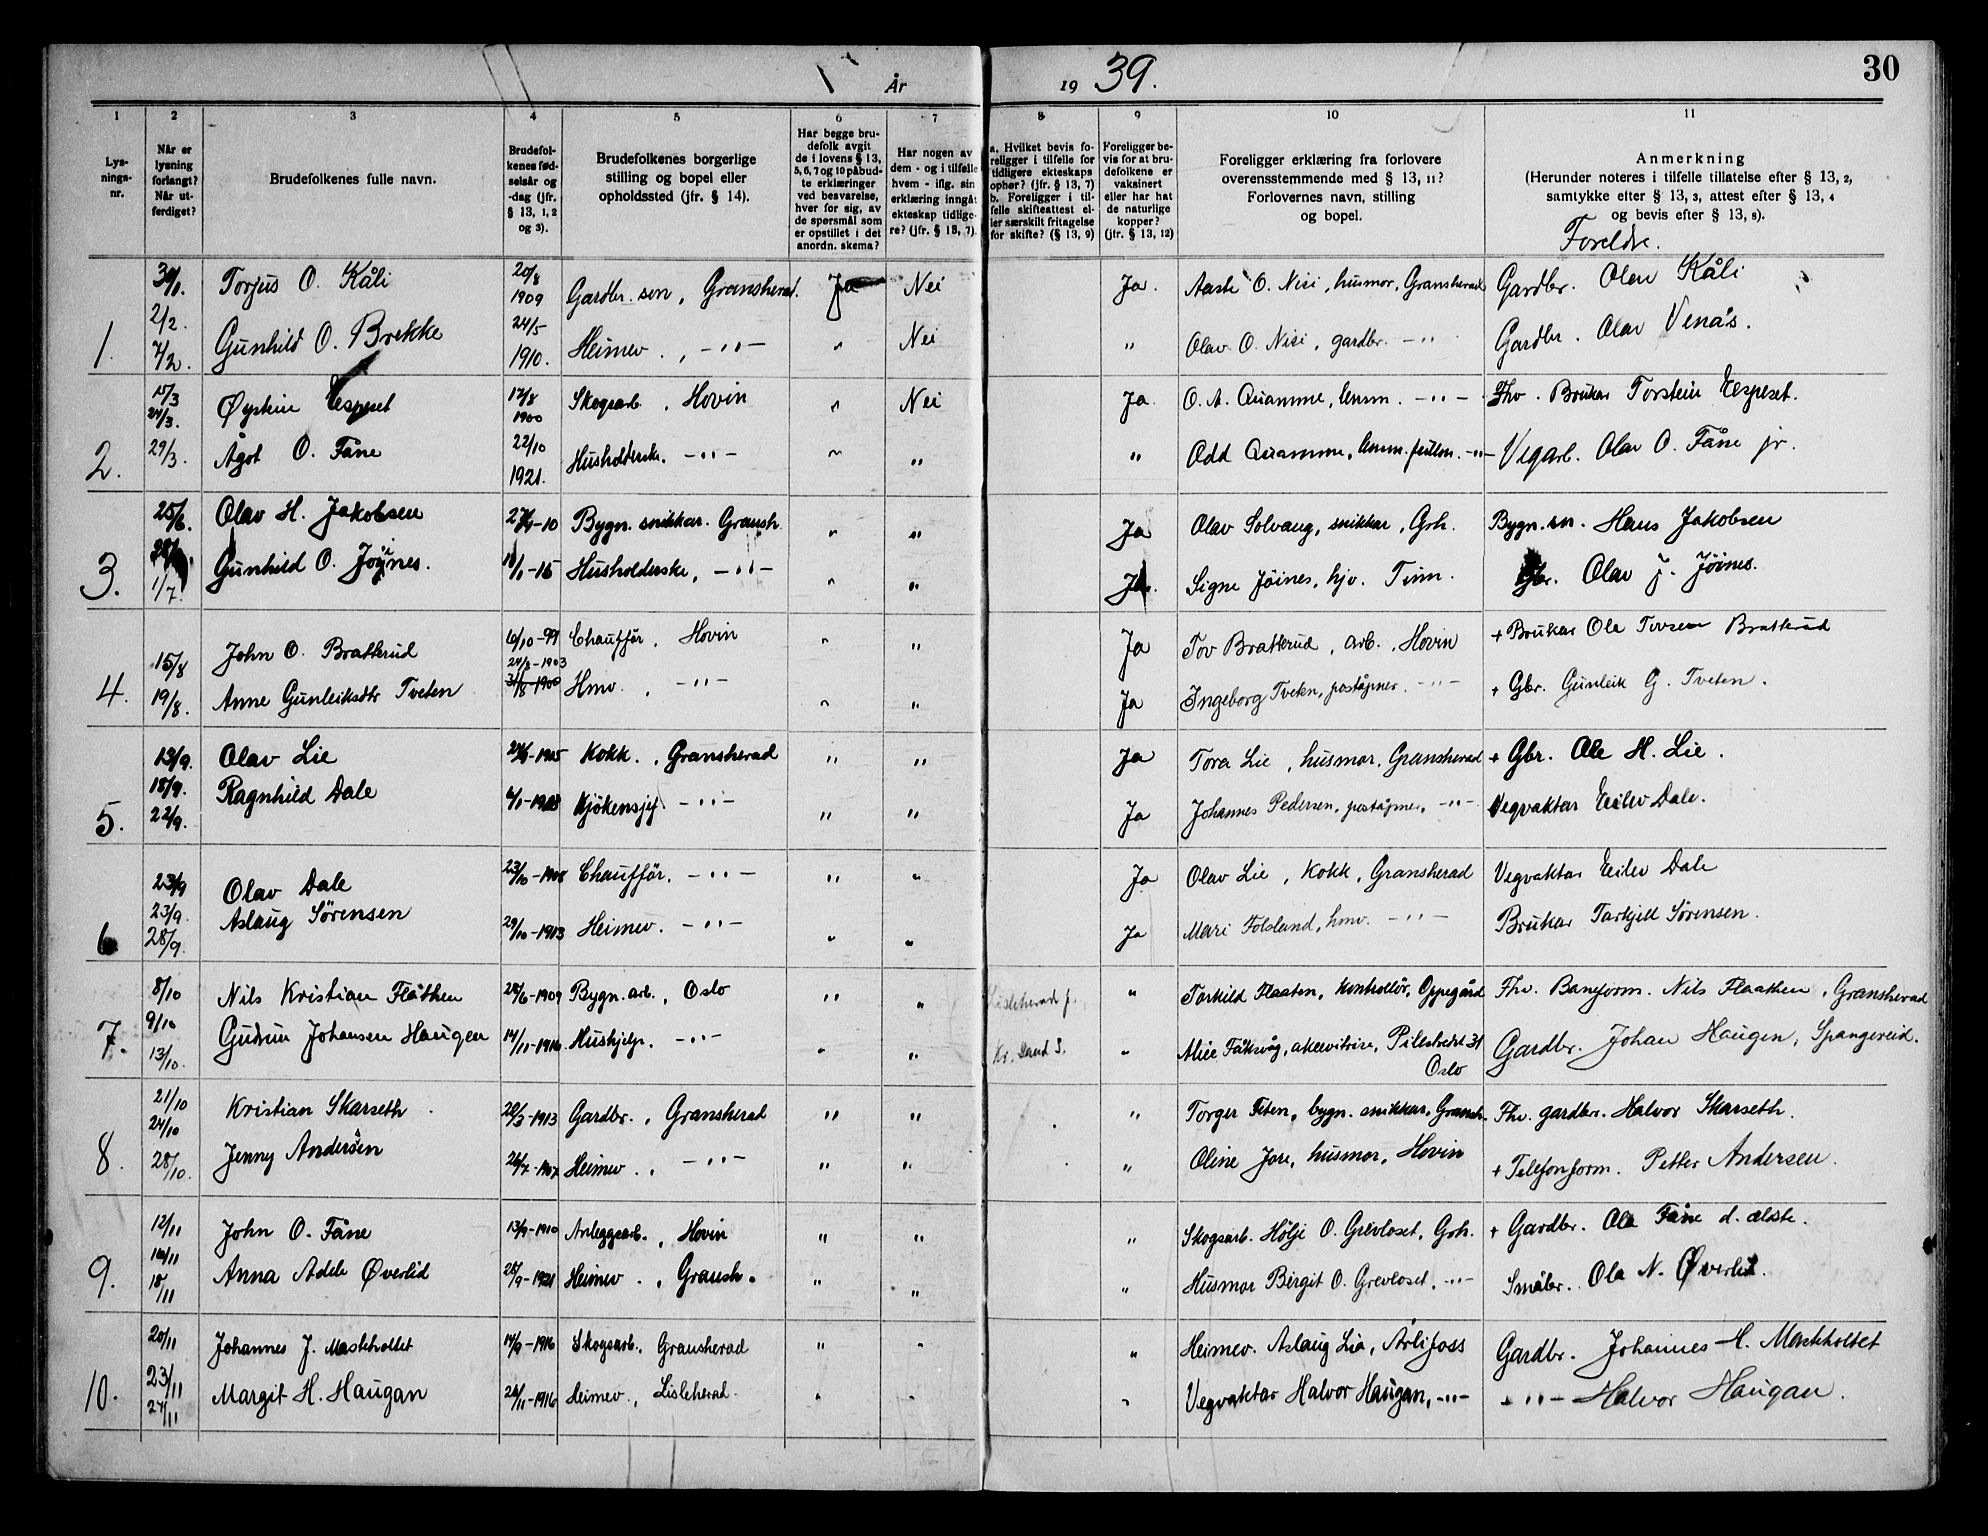 År 1939.
30
1 2 3 4 5 6 7 8 9 10 11
Lysnings-nr.
Når er lysning forlangt? Når utferdiget?
Brudefolkenes fulle navn.
Brudefolkenes fødselsår og -dag (jfr. § 13, 1, 2 og 3).
Brudefolkenes borgerlige stilling og bopel eller opholdssted (jfr. § 14).
Har begge brudefolk avgit de i lovens § 13, 5, 6, 7 og 10 påbudte erklæringer ved besvarelse, hver for sig, av de spørsmål som er opstillet i det anordn. skema?
Har nogen av dem - og i tilfelle hvem - iflg. sin erklæring inngått ekteskap tidligere? (jfr. § 13, 7).
a. Hvilket bevis foreligger i tilfelle for tidligere ekteskaps ophør? (jfr. § 13, 7) b. Foreligger i tilfelle skifteattest eller særskilt fritagelse for skifte? (§ 13, 9)
Foreligger bevis for at brudefolkene er vaksinert eller har hat de naturlige kopper? (jfr. § 13, 12)
Foreligger erklæring fra forlovere overensstemmende med § 13, 11? Forlovernes navn, stilling og bopel.
Anmerkning (Herunder noteres i tilfelle tillatelse efter § 13, 2, samtykke efter § 13, 3, attest efter § 13, 4 og bevis efter § 13, 8).
Foreldre.
Torjus O. Kåli 20/8 1909 Gardbr. son, Gransherad. Ja Nei Ja. Aaste O. Nisi, husmor, Gransherad Gardbr. Olav Kåli
1. 2/2. 7/2. Gunhild O. Brekke 24/5 1910. Heimev., -"- " Nei " Olav O. Nisi, gardbr. -"- Gardbr. Olav Venås.
15/3 24/3. Øystein Espeset 12/8 1900 Skogsarb., Hovin " Nei Ja. O. A. Quamme, lensm. -"- Fhv. Brukar Torstein Espeset.
2. 29/3. Ågot O. Fåne 22/10 1921. Husholderske. -"- " " " Odd Quamme, lensm. fullm. -"- Vegarb. Olav O. Fåne jr.
25/6. Olav H. Jakobsen Bygn. snikkar. Gransh. " " Ja Olav Solvang, snikkar, Grh. Bygn. sn. Hans Jakobsen
3. 1/7. Gunhild O. Jøines. Husholderske, -"- " " Ja. Signe Jøines, hjv. Tinn. Gbr. Olav J. Jøines.
15/8 John O. Bratterud 10/10-99 Chauffør, Hovin " " Ja Tov Bratterud, arb., Hovin + Brukar Ole Tovsen Bratterud
4. 19/8. Anne Gunleiksdtr Tveten 24/3-1903 Hmv., -"- " " Ja Ingeborg Tveten, poståpner. -"- + Gbr. Gunleik G. Tveten.
13/9. Olav Lie Kokk., Gransherad " " Ja Tora Lie, husmor, Gransherad + Gbr. Ole H. Lie.
5. 18/9. 22/9. Ragnhild Dale Kjøkensjef -"- " " Ja Johannes Pedersen, poståpner, -"- Vegvaktar Eilev Dale.
23/9 Olav Dale Chauffør. -"- " " Ja Olav Lie, Kokk, Gransherad Vegvaktar Eilev Dale
6 23/9. 28/9. Aslaug Sørensen 29/10-1913 Heimev. -"- " " Ja Mari Folsland, hmv. -"- Brukar Tarkjell Sørensen.
8/10 Nils Kristian Flåthen 28/6-1909 Bygn. arb., Oslo " " Lisleherad p. " Torkild Flaaten, kontrollør, Oppegård Fhv. Banform. Nils Flaathen, Gransherad
7. 9/10 13/10. Gudrun Johansen Haugen 14/11-1916. Hushjelp. -"- " " Kr. sand S. " Alice Falksvåg, Pilestredet 31 Oslo Gardbr. Johan Haugen, Spangereid.
21/10 24/10 Kristian Skarseth 20/3-1913 Gardbr., Gransherad " " " Torger Feten, bygn. snikkar, Gransh. Fhv. gardbr. Halvor Skarseth.
8. 28/10. Jenny Andersen Heimev., -"- " " " Oline Jore, husmor, Hovin + Telefonform. Petter Andersen.
12/11 John O. Fåne 13/9-1910 Anleggsarb., Hovin " " " Skogsarb. Hølje O. Grevloset, Grh. + Gardbr. Ole Fåne d. eldste.
9. 18/11 Anna Adele Øverlid 28/9-1921 Heimev., Gransh. " " " Husmor Birgit O. Grevloset, -"- Småbr. Ole N. Øverlid.
20/11 Johannes J. Masteholtet Skogsarb., Gransherad " " " Heimev. Aslaug Lia, Årlifoss Gardbr. Johannes H. Masteholtet
10. 23/11 27/11 Margit H. Haugan Heimev., Lisleherad. " " " Vegvaktar Halvor Haugan, -"- -"- Halvor Haugan.